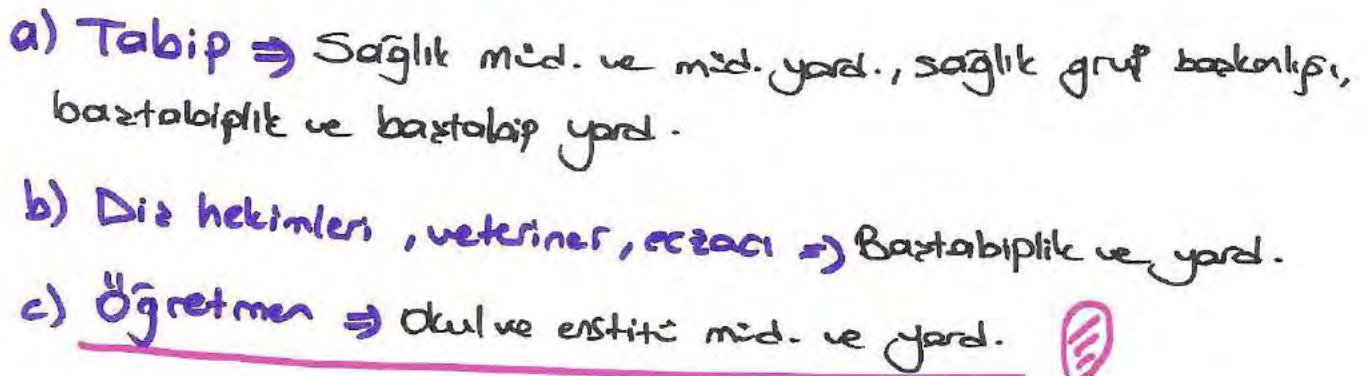 a) Tabip ⇒ Sağlık müd. ve müd. yard., sağlık grup başkanlığı,
baştabiplik ve baştabip yard.
b) Diş hekimleri, veteriner, eczacı ⇒ Baştabiplik ve yard.
c) Öğretmen ⇒ Okul ve enstitü müd. ve yard.